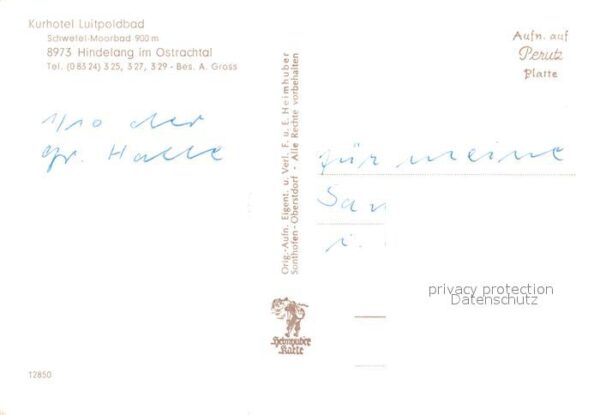 Kurhotel Luitpoldbad
Schwefel-Moorbad 900 m
8973 Hindelang im Ostrachtal
Tel. (0 83 24) 3 25, 3 27, 3 29 - Bes. A. Gross
Aufn. auf
Perutz
Platte
1/10 der
gr. Halle
Orig.-Aufn. Eigent. u. Verl. F. u. E. Heimhuber
Sonthofen-Oberstdorf - Alle Rechte vorbehalten
für meine
privacy protection
Datenschutz
Heimhuber
Karte
12850